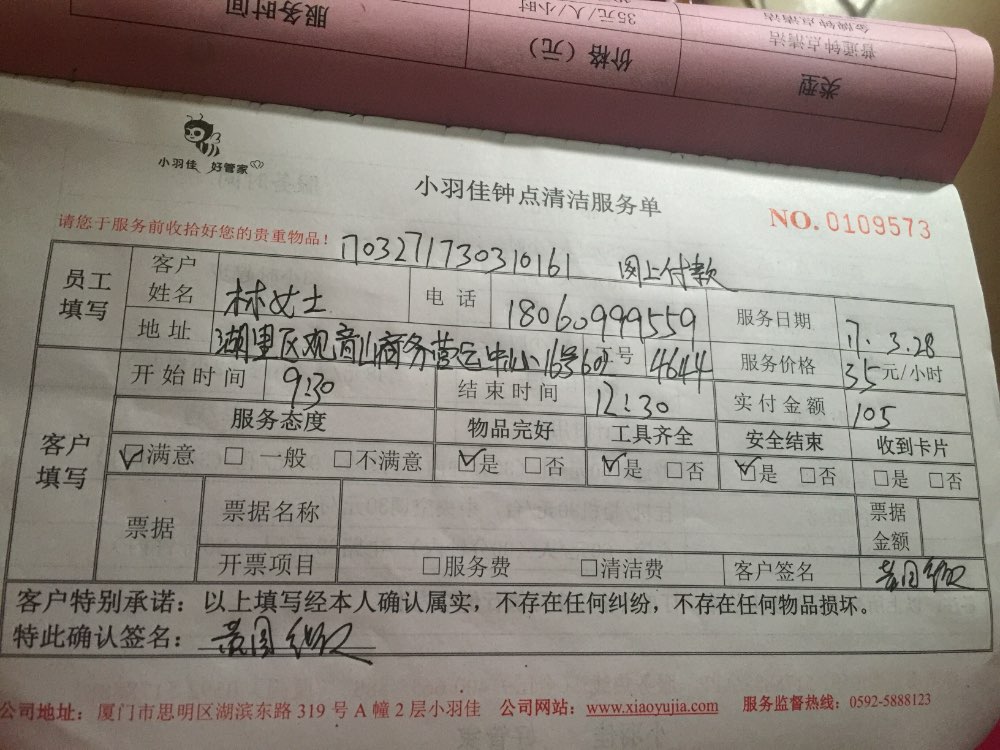 服务时间
35元/人/小时
金牌钟点清洁
价格（元）
普通钟点清洁
类型
小羽佳 好管家
小羽佳钟点清洁服务单
NO. 0109573
请您于服务前收拾好您的贵重物品！
1703271730310161 网上付款
员工填写
客户姓名 林女士 电话 18060999559 服务日期 17. 3. 28
地址 湖里区观音山商务营运中心16号602号 4644 服务价格 35元/小时
开始时间 9:30 结束时间 12:30 实付金额 105
客户填写
服务态度 物品完好 工具齐全 安全结束 收到卡片
☑满意 □ 一般 □不满意 ☑是 □否 ☑是 □否 ☑是 □否 □是 □否
票据 票据名称 票据金额
开票项目 □服务费 □清洁费 客户签名
客户特别承诺：以上填写经本人确认属实，不存在任何纠纷，不存在任何物品损坏。
特此确认签名：
公司地址：厦门市思明区湖滨东路 319 号 A 幢 2 层小羽佳 公司网站：www.xiaoyujia.com 服务监督热线：0592-5888123